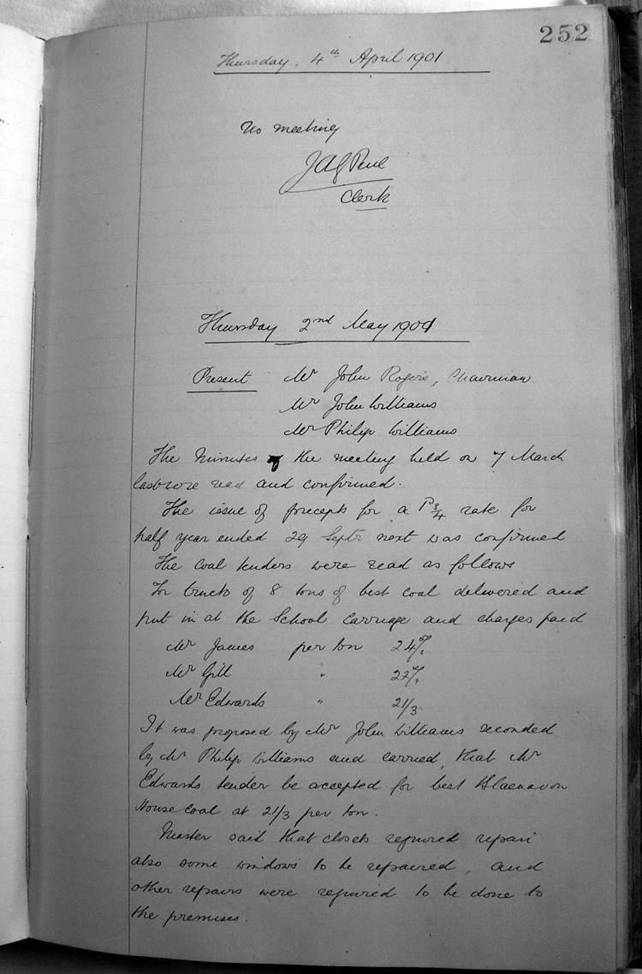 252
Thursday. 4th April 1901
No meeting
Clerk
Thursday 2nd May 1901
Present Mr John Rogers, Chairman
Mr John Williams
Mr Philip Williams
The Minutes of the meeting held on 7 March
last were read and confirmed.
The issue of precepts for a rate for
half year ended 29 Septr next was confirmed
The Coal tenders were read as follows
In trucks of 8 tons of best coal delivered and
put in at the School carriage and charges paid
Mr James per ton 24/.
Mr Gill " 22/.
Mr Edwards " 21/3
It was proposed by Mr John Williams seconded
by Mr Philip Williams and carried, that Mr
Edwards tender be accepted for best Blaenavon
House Coal at 21/3 per ton.
Master said that closets required repair
also some windows to be repaired, and
other repairs were required to be done to
the premises.